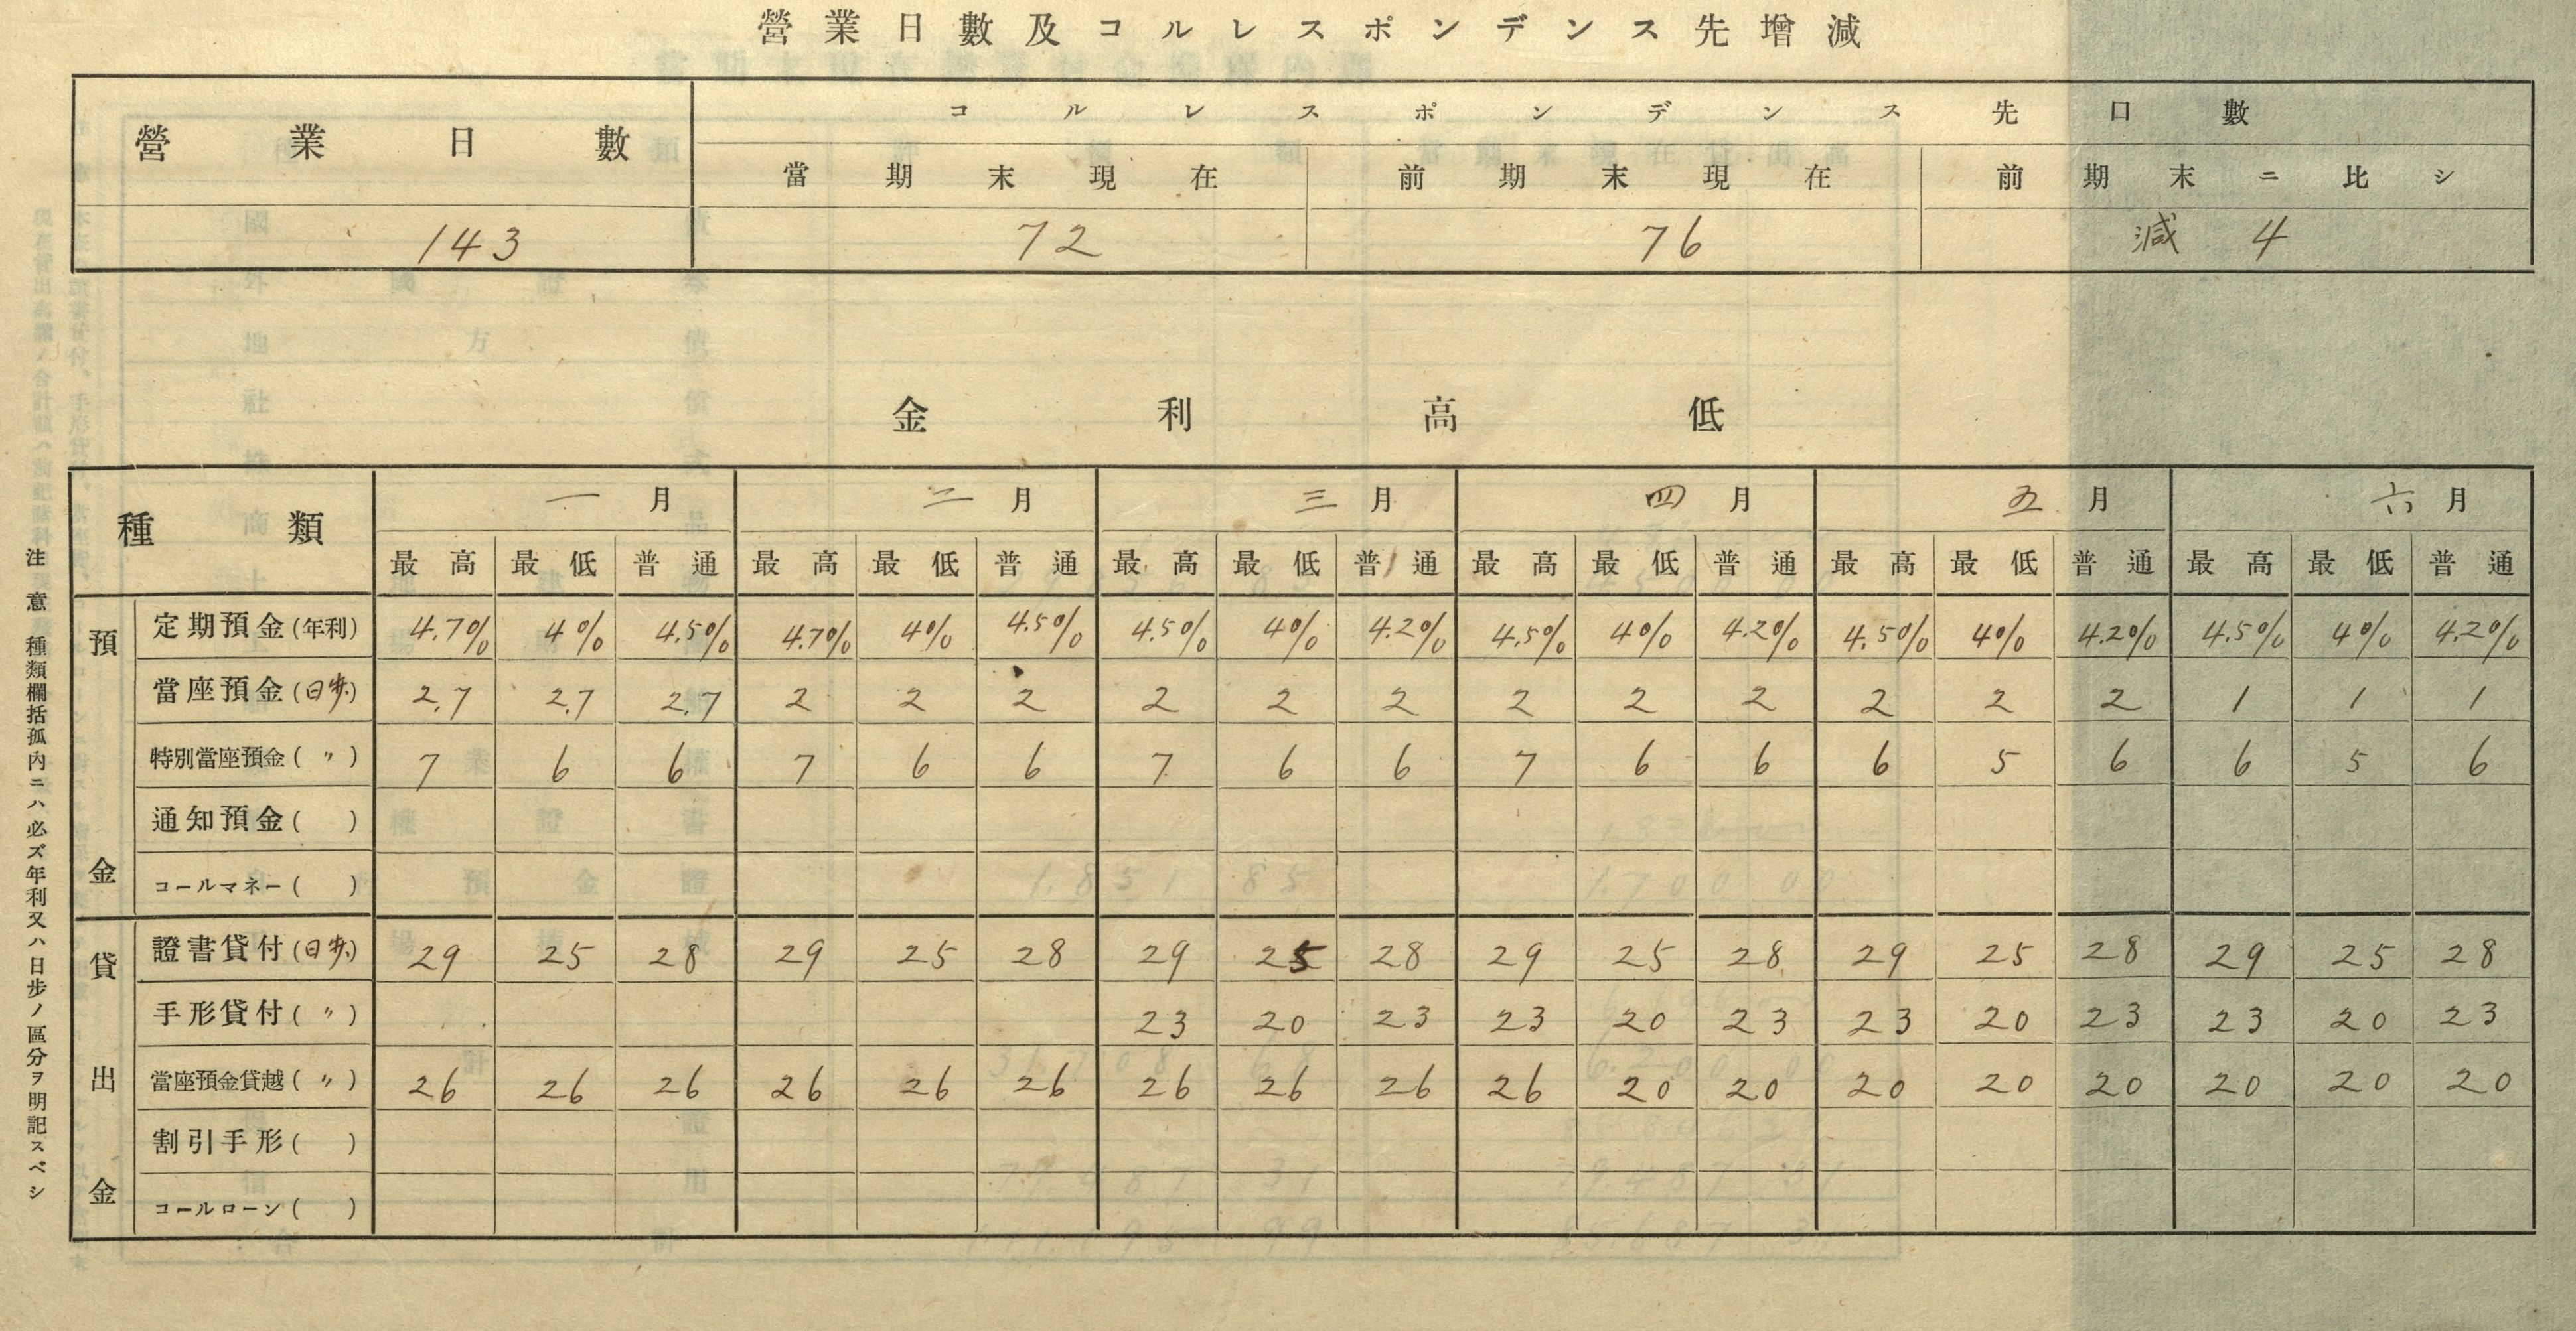 營業日數及コルレスポンデンス先增減
營業日數 コルレスポンデンス先口數
當期末現在 前期末現在 前期末ニ比シ
143 72 76 減 4
金利高低
種類 一月 二月 三月 四月 五月 六月
最高 最低 普通 最高 最低 普通 最高 最低 普通 最高 最低 普通 最高 最低 普通 最高 最低 普通
預金
定期預金(年利) 4.7% 4% 4.5% 4.7% 4% 4.5% 4.5% 4% 4.2% 4.5% 4% 4.2% 4.5% 4% 4.2% 4.5% 4% 4.2%
當座預金(日歩) 2.7 2.7 2.7 2 2 2 2 2 2 2 2 2 2 2 2 1 1 1
特別當座預金(〃) 7 6 6 7 6 6 7 6 6 7 6 6 6 5 6 6 5 6
通知預金( )
コールマネー( )
貸出金
證書貸付(日歩) 29 25 28 29 25 28 29 25 28 29 25 28 29 25 28 29 25 28
手形貸付(〃) 23 20 23 23 20 23 23 20 23 23 20 23
當座預金貸越(〃) 26 26 26 26 26 26 26 26 26 26 20 20 20 20 20 20 20 20
割引手形( )
コールローン( )
注意 種類欄括孤內ニハ必ズ年利又ハ日步ノ區分ヲ明記スベシ